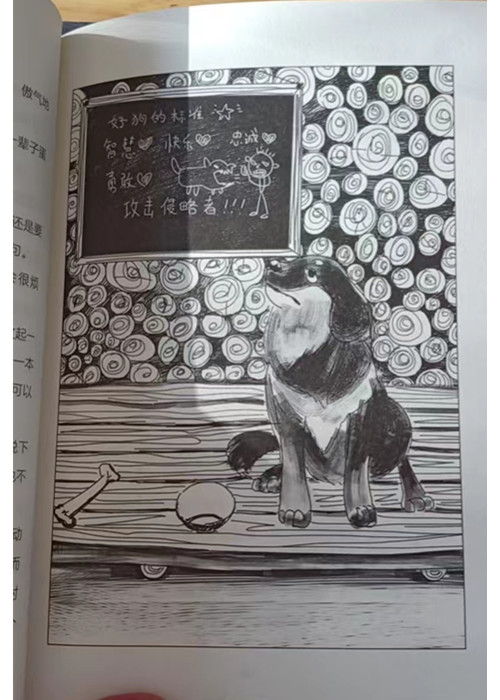 傲气地
一辈子蛋
还是要
句。
会很烦
起一
一本
可以
说下
不
动
而
好狗的标准
智慧 快乐 忠诚
勇敢
攻击侵略者!!!